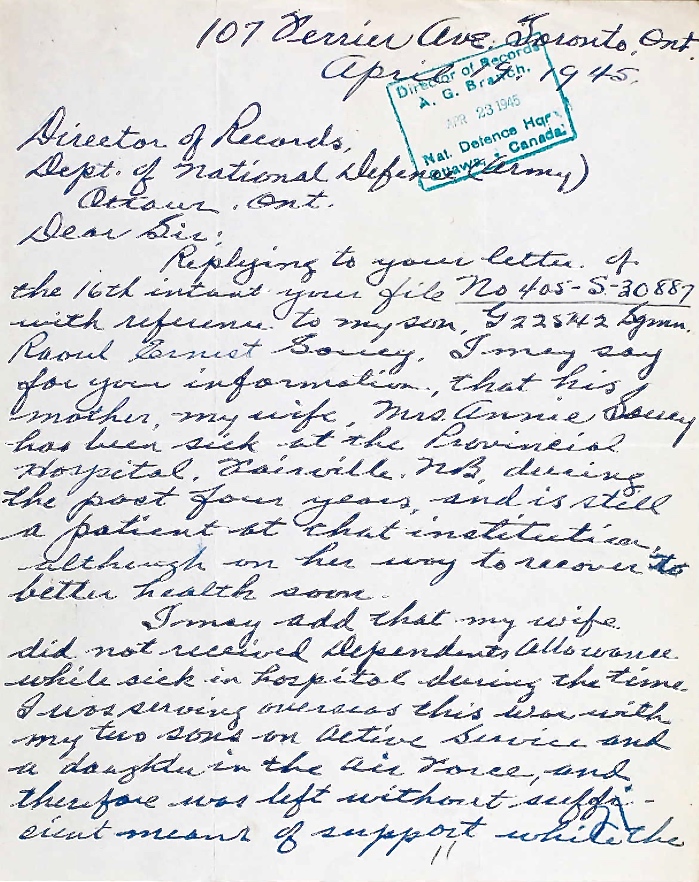 107 Perrier Ave. Toronto, Ont.
April 19, 1945.
Director of Records
A. G. Branch.
APR 23 1945
Nat. Defence Hqr
Ottawa, Canada.
Director of Records,
Dept. of National Defence (Army)
Ottawa, Ont.
Dear Sir:
Replying to your letter of
the 16th intant your file No 405-S-30887
with reference to my son, G22542 Sgmn.
Raoul Ernest Soucy, I may say
for your information, that his
mother, my wife, Mrs. Annie Soucy
has been sick at the Provincial
Hospital, Fairville. N.B. during
the past four years, and is still
a patient at that institution,
although on her way to recover to
better health soon.
I may add that my wife
did not received Dependents Allowance
while sick in hospital during the time
I was serving overseas this war with
my two sons on Active Service and
a daughter in the Air Force, and
therefore was left without suffi-
cient means of support while the